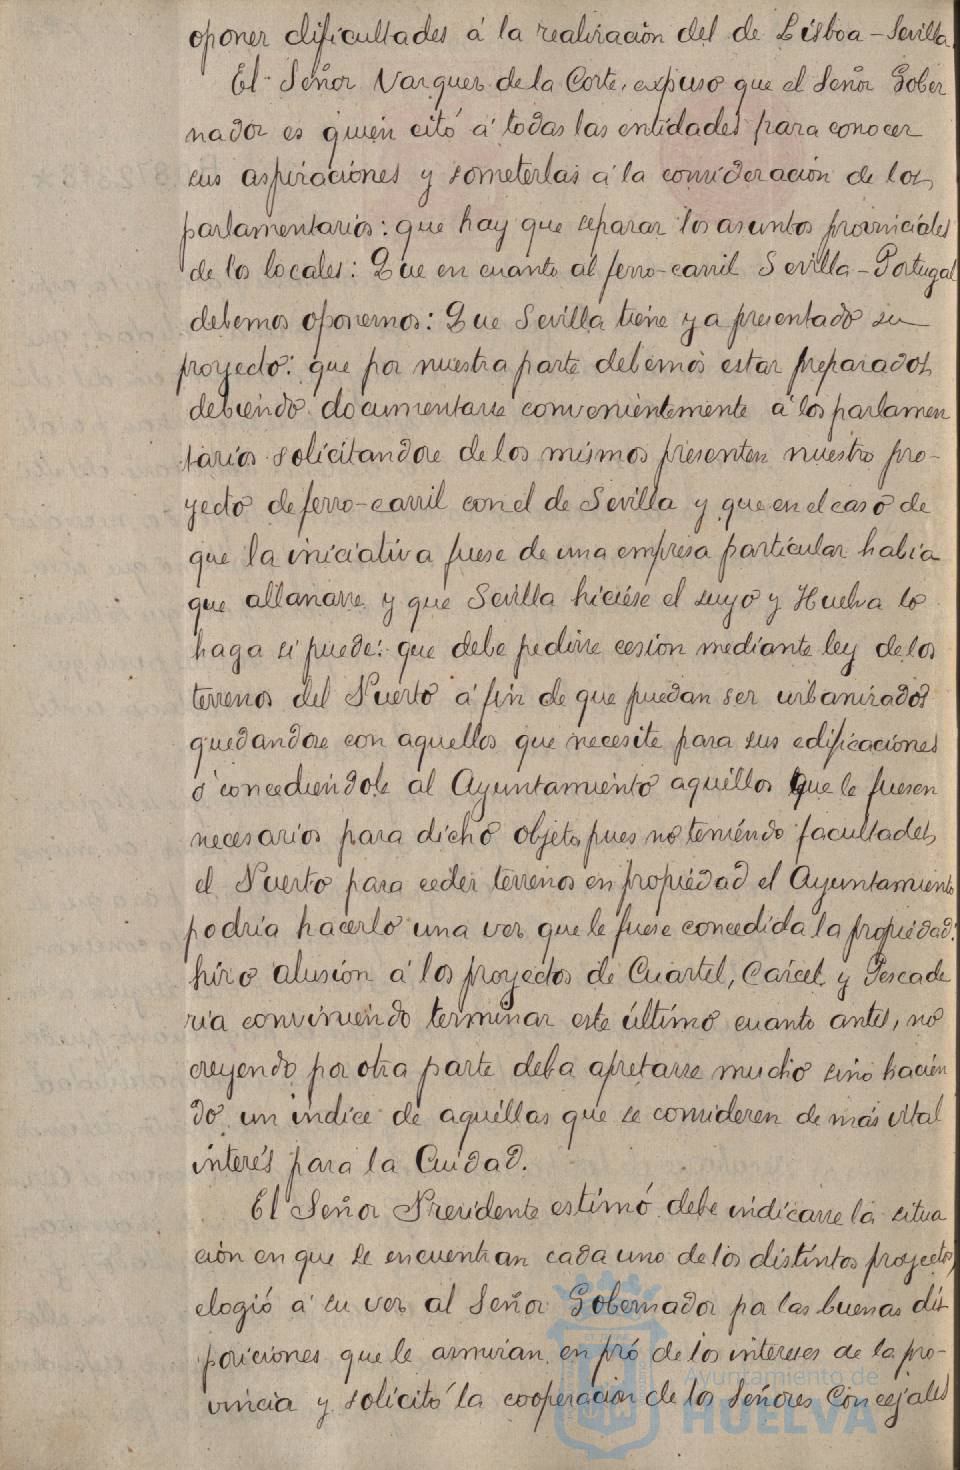 oponer dificultades á la realización del de Lisboa-Sevilla.
El Señor Vazquez de la Corte, expuso que el Señor Gober
nador es quien citó á todas las entidades para conocer
sus aspiraciones y someterlas á la consideración de los
parlamentarios: que hay que separar los asuntos provinciales
de los locales: Que en cuanto al ferro-carril Sevilla-Portugal
debemos oponernos: Que Sevilla tiene ya presentado su
proyecto: que por nuestra parte debemos estar preparados
debiendo documentarse convenientemente á los parlamen
tarios solicitandose de los mismos presenten nuestro pro-
yecto de ferro-carril con el de Sevilla y que en el caso de
que la iniciativa fuese de una empresa particular habia
que allanarse y que Sevilla hiciése el suyo y Huelva lo
haga si puede: que debe pedirse cesión mediante ley de los
terrenos del Puerto á fin de que puedan ser urbanizados
quedandose con aquellos que necesite para sus edificaciones
ó concediendole al Ayuntamiento aquéllos que le fuesen
necesarios para dicho objeto, pues no teniéndo facultades
el Puerto para ceder terrenos en propiedad el Ayuntamiento
podría hacerlo una vez que le fuese concedida la propiedad:
hizo alusión á los proyectos de Cuartel, Cárcel y Pescade
ría conviniendo terminar este último cuanto antes, no
creyendo por otra parte deba apretarse mucho sino hacien
do un indice de aquéllas que se consideren de más vital
interés para la Ciudad.
El Señor Presidente estimó debe indicarse la situa
ción en que se encuentran cada uno de los distintos proyectos,
elogió á su vez al Señor Gobernador por las buenas dis
posiciones que le animan en pró de los intereses de la pro-
vincia y solicitó la cooperación de los Señores Concejales
Ayuntamiento de
HUELVA